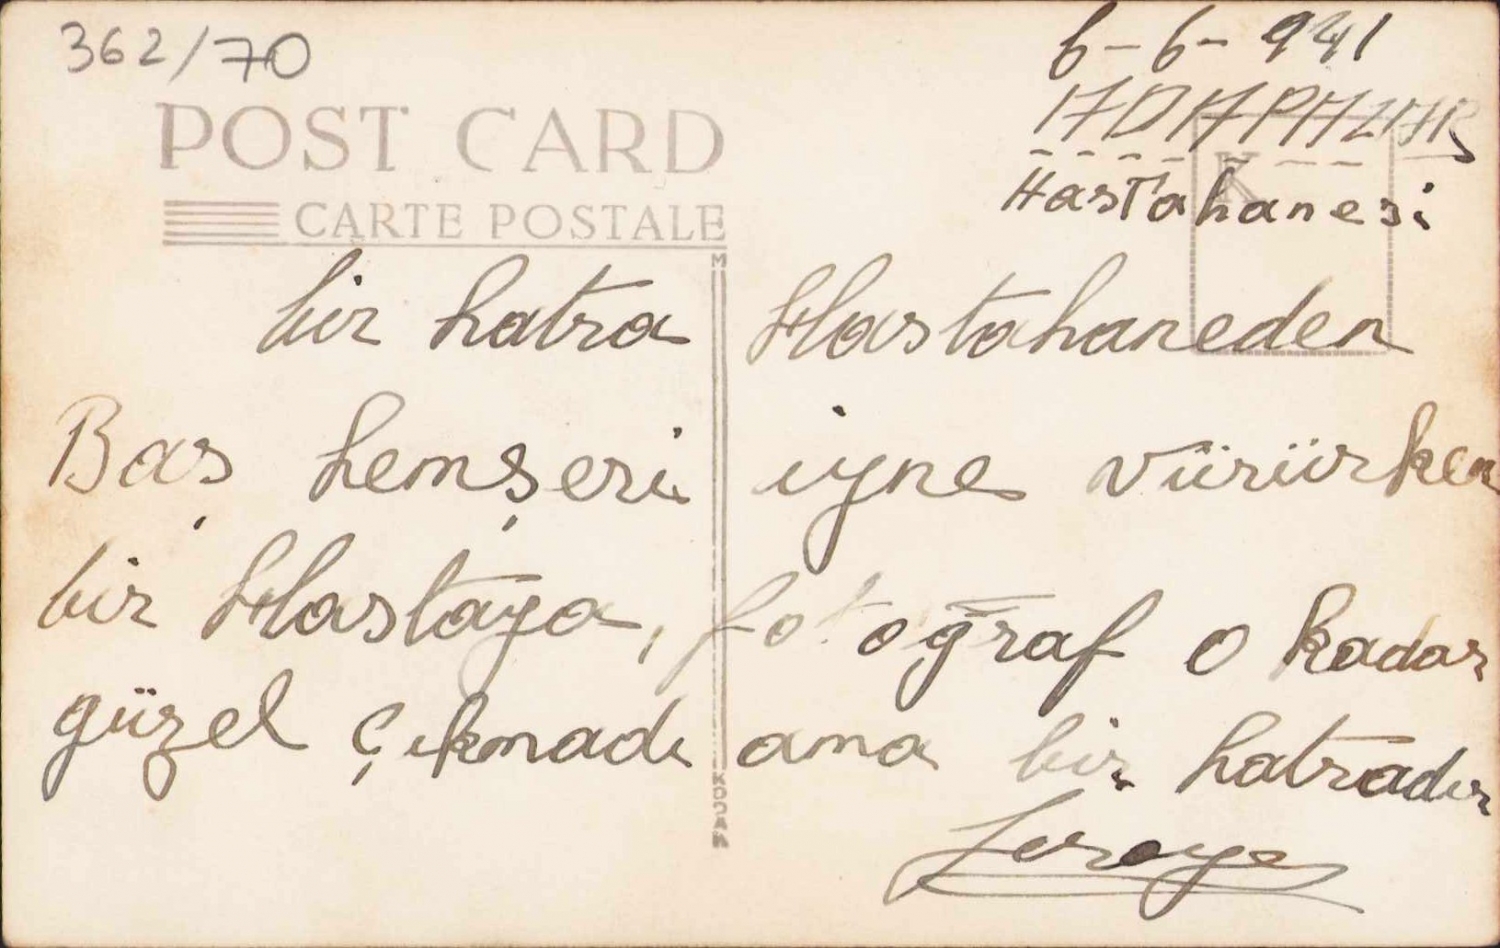 362/70
6-6-941
ADAPAZAR
Hastahanesi
POST CARD
CARTE POSTALE
bir hatra Hastahaneden
Baş hemşeri iyne vürürken
bir Hastaya, fotoğraf o kadar
güzel çıkmadı ama bir hatradır
KODAK